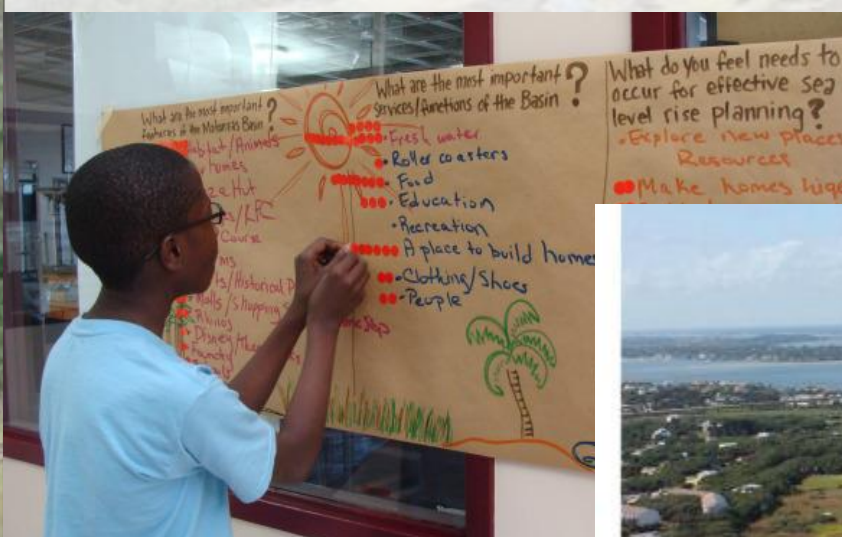 What are the most important
features of the Matanzas Basin?
Habitat/Animals
homes
Hut
/KFC
Course
ts/Historical
Malls/shopping
Rhinos
Disney/
Family
What are the most important
services/functions of the Basin?
• Fresh water
• Roller coasters
• Food
• Education
• Recreation
A place to build homes
• Clothing/Shoes
• People
What do you feel needs to
occur for effective sea
level rise planning?
• Explore new places
Resources
Make homes